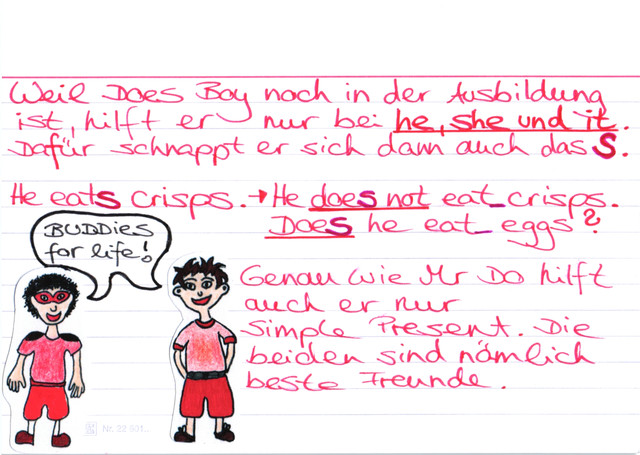 Weil Does Boy noch in der Ausbildung
ist, hilft er nur bei he, she und it.
Dafür schnappt er sich dann auch das S.
He eats crisps. → He does not eat_ crisps.
Does he eat_ eggs?
BUDDies
for life!
Genau wie Mr Do hilft
auch er nur
Simple Present. Die
beiden sind nämlich
beste Freunde.
Nr. 22 531...